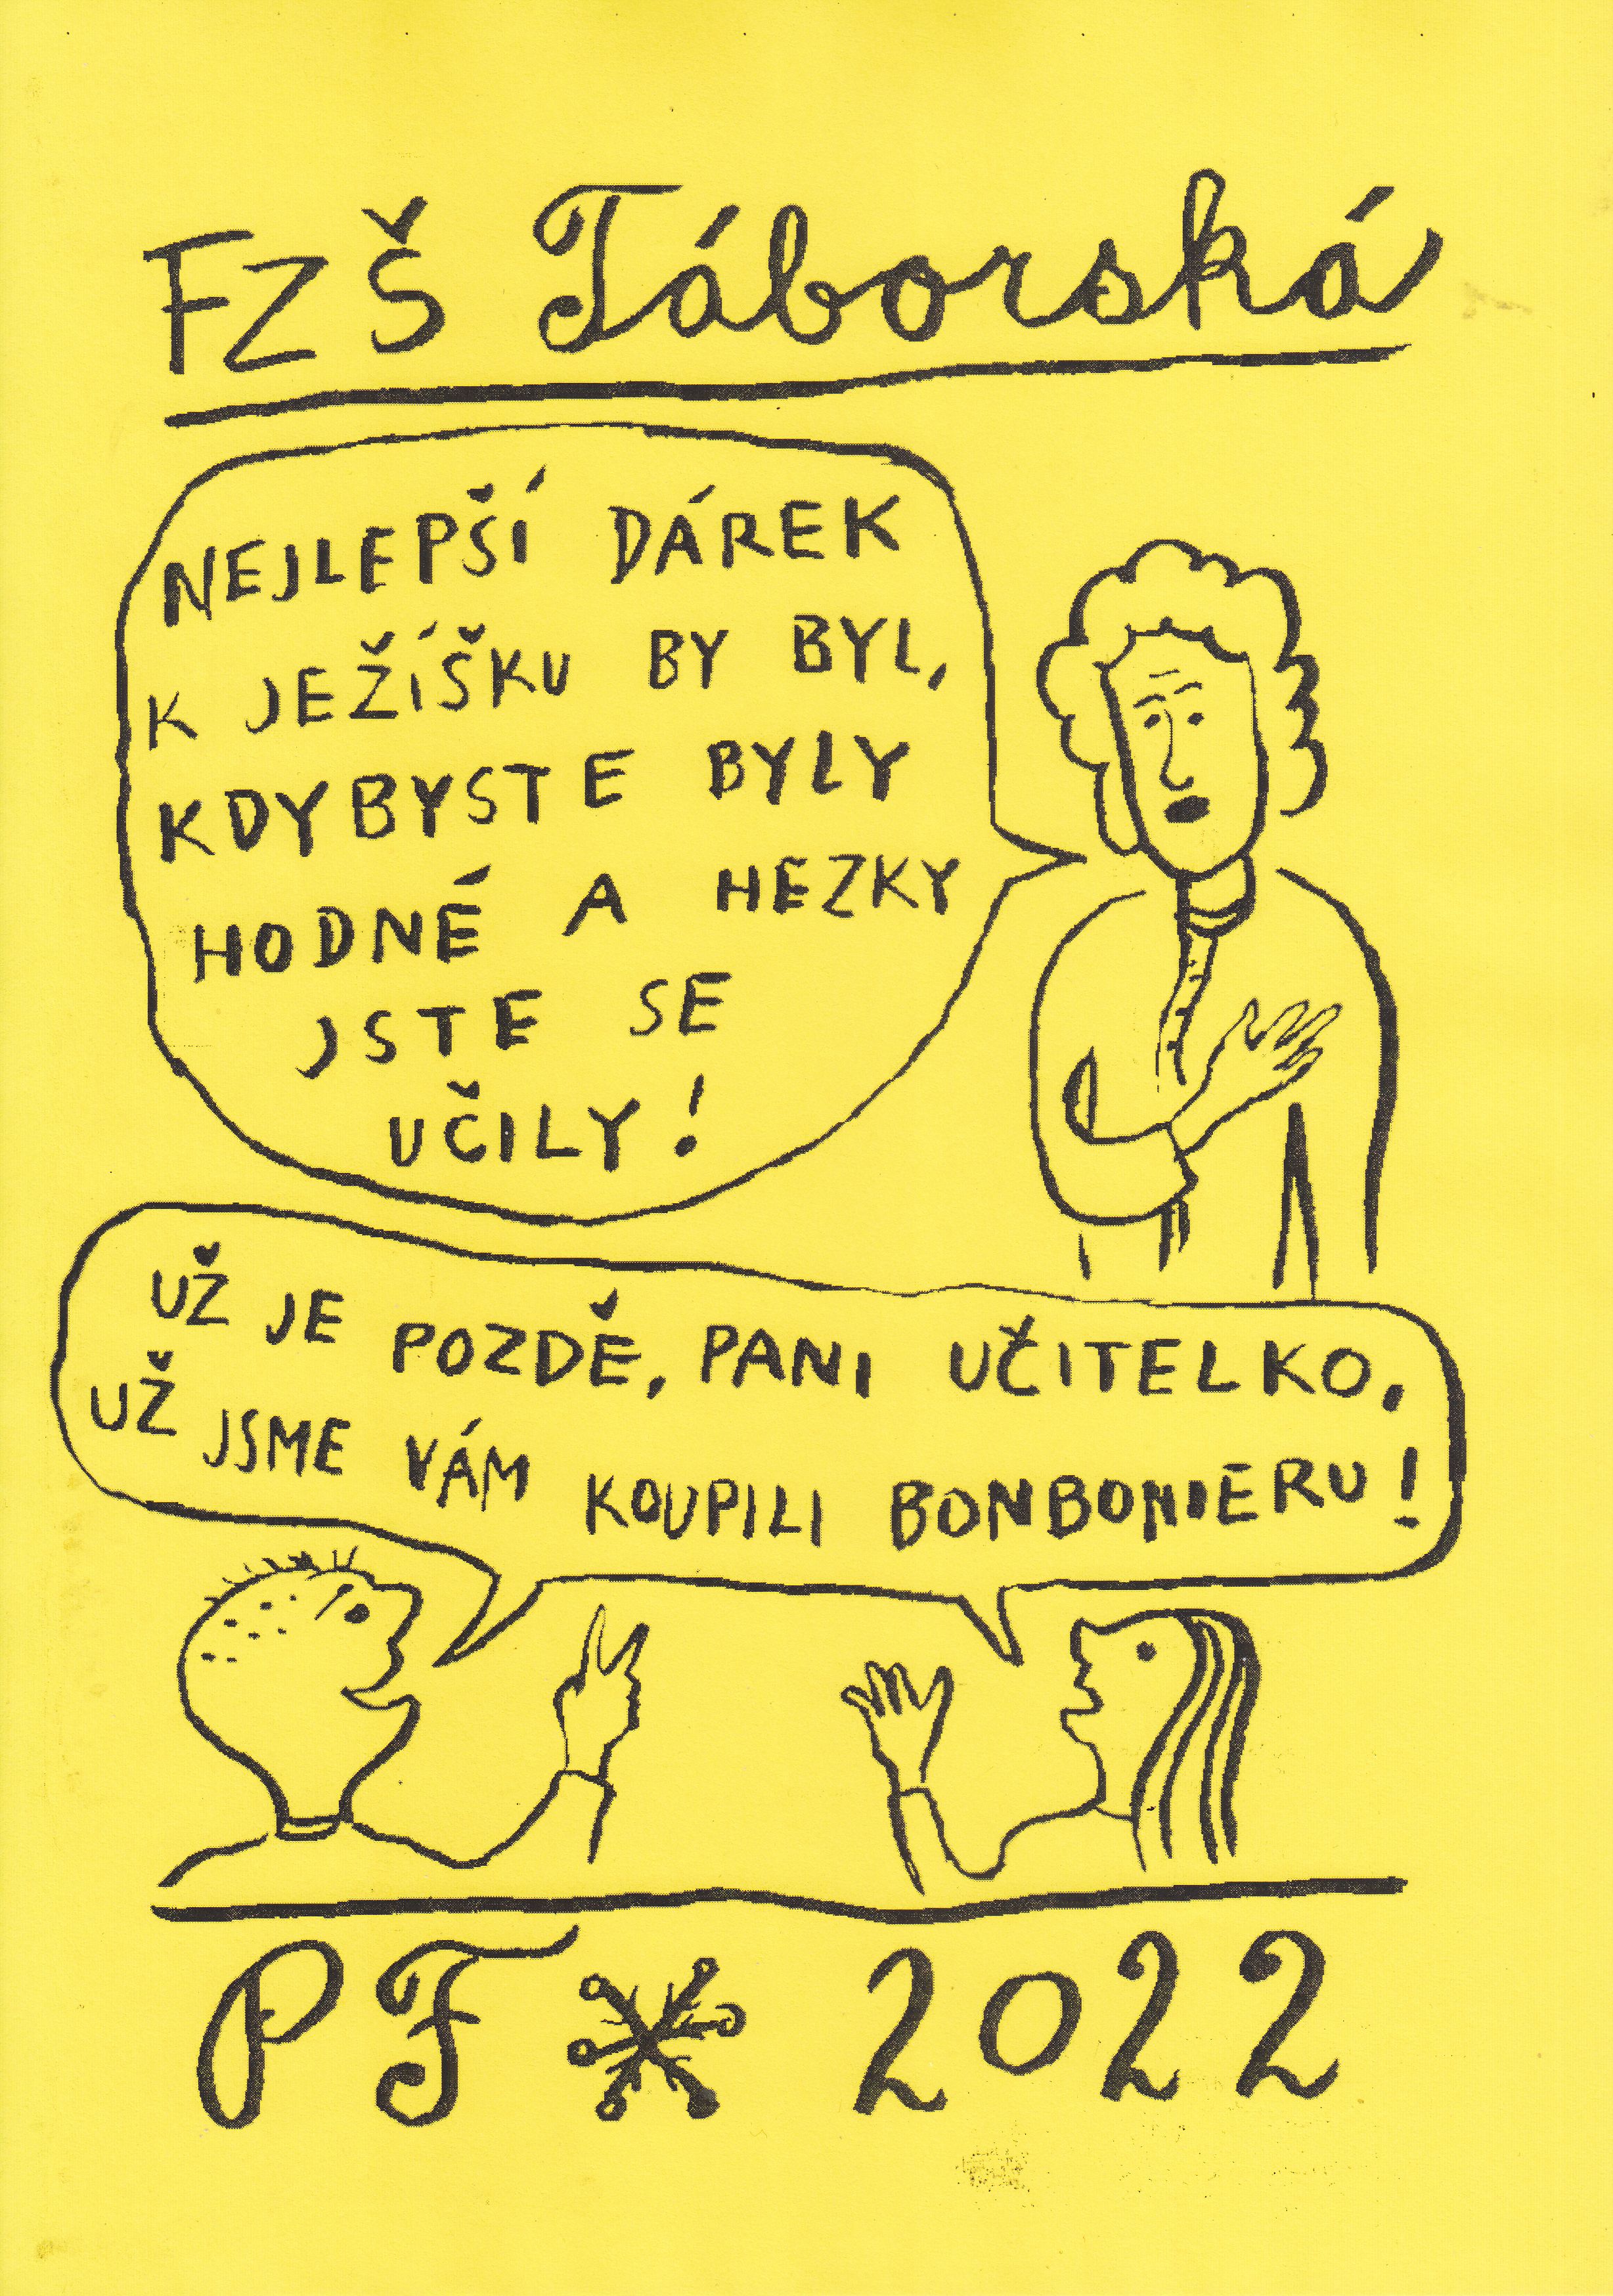 FZŠ Táborská
NEJLEPŠÍ DÁREK
K JEŽÍŠKU BY BYL,
KDYBYSTE BYLY
HODNÉ A HEZKY
JSTE SE
UČILY!
UŽ JE POZDĚ, PANI UČITELKO,
UŽ JSME VÁM KOUPILI BONBONIERU!
PF 2022